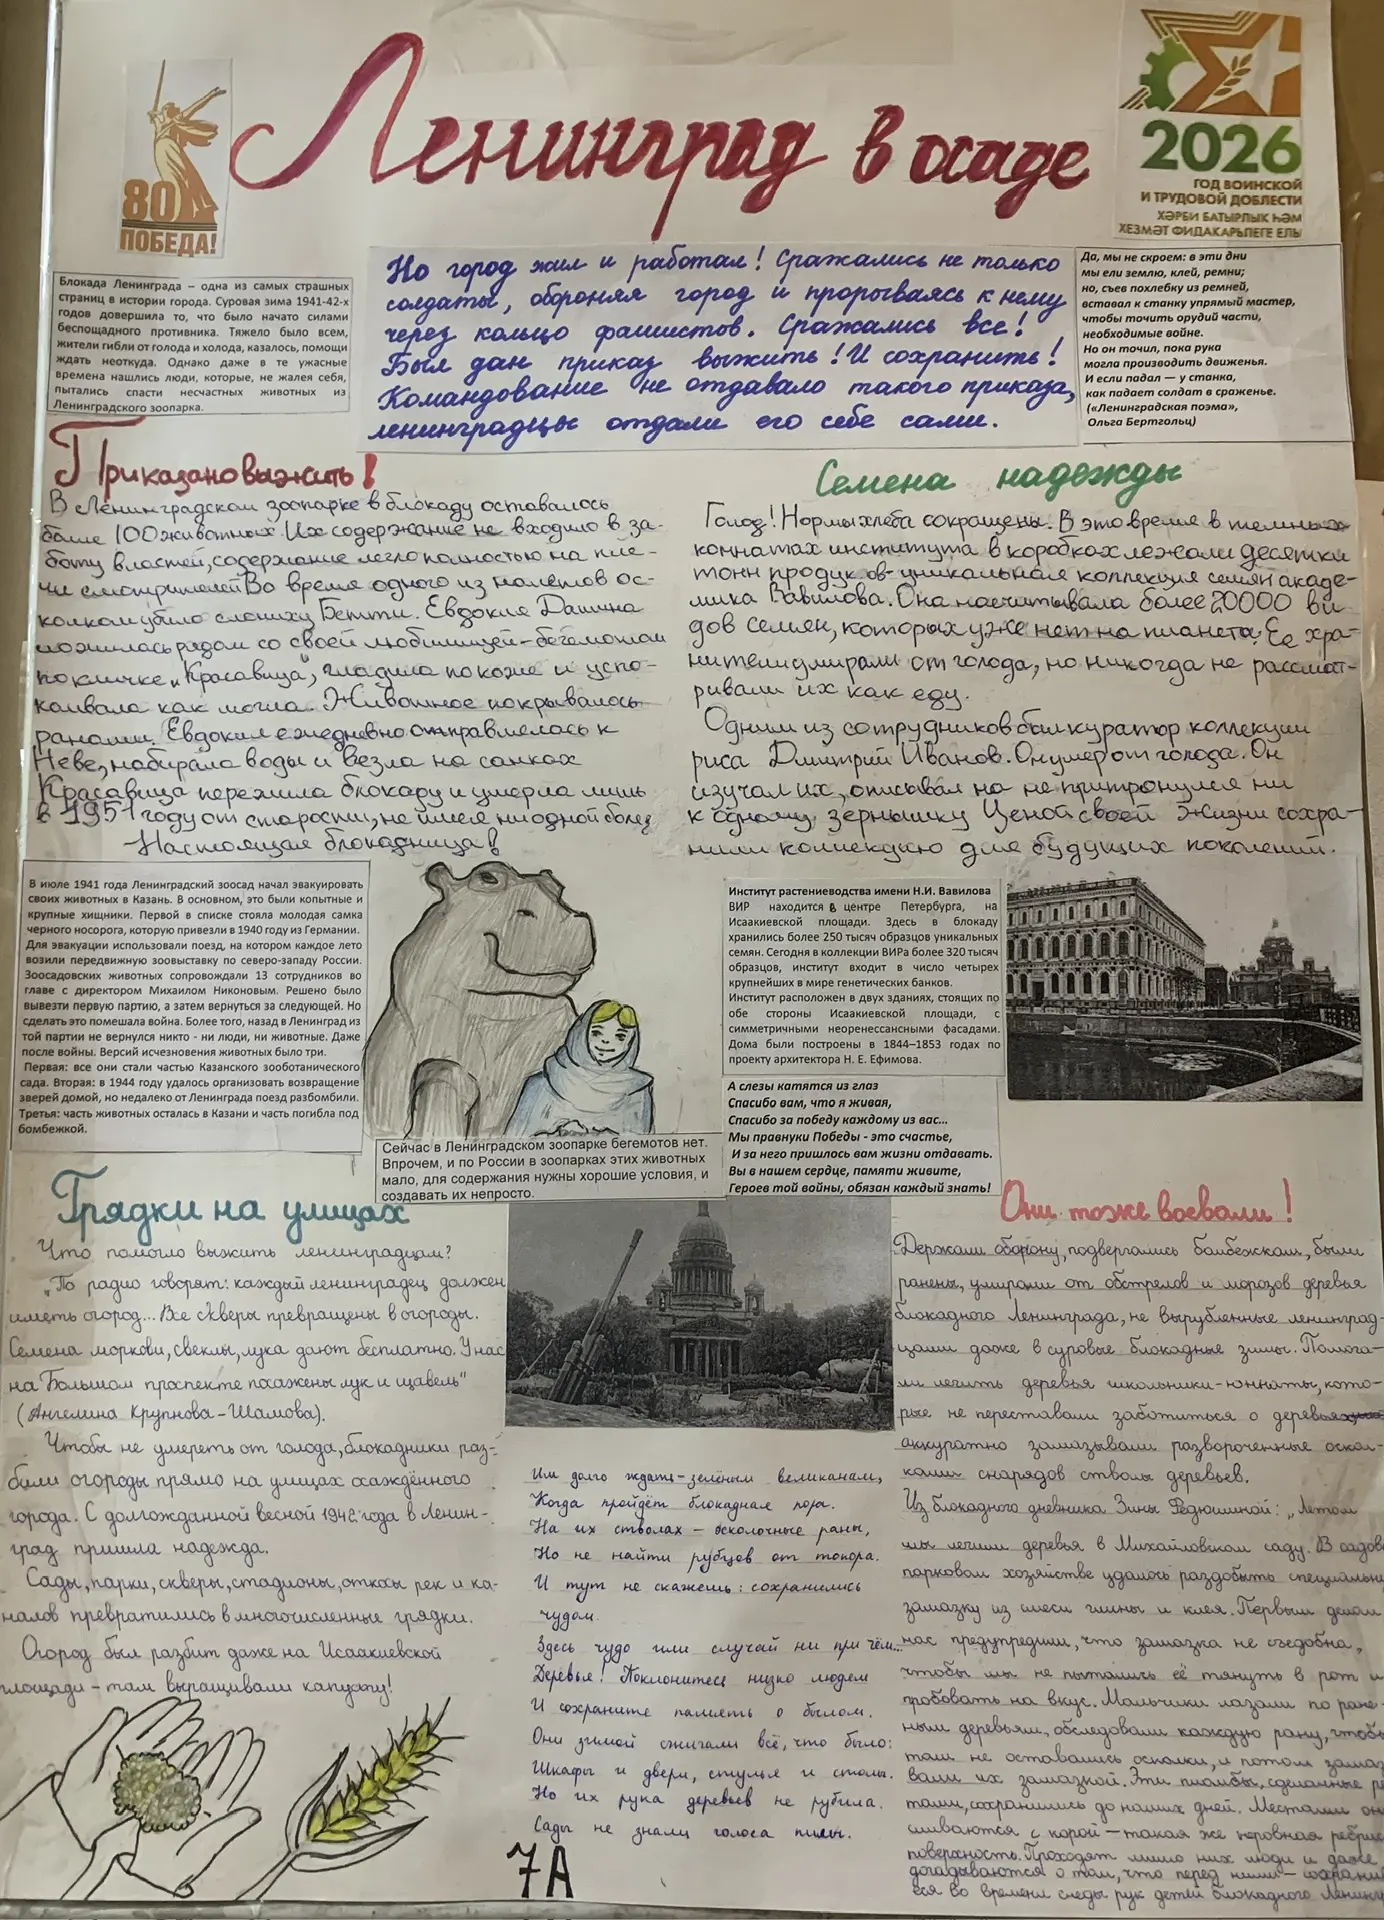 Ленинград в осаде
80
ПОБЕДА!
2026
ГОД ВОИНСКОЙ
И ТРУДОВОЙ ДОБЛЕСТИ
ХӘРБИ БАТЫРЛЫК ҺӘМ
ХЕЗМӘТ ФИДАКАРЬЛЕГЕ ЕЛЫ
Блокада Ленинграда – одна из самых страшных
страниц в истории города. Суровая зима 1941-42-х
годов довершила то, что было начато силами
беспощадного противника. Тяжело было всем,
жители гибли от голода и холода, казалось, помощи
ждать неоткуда. Однако даже в те ужасные
времена нашлись люди, которые, не жалея себя,
пытались спасти несчастных животных из
Ленинградского зоопарка.
Но город жил и работал! Сражались не только
солдаты, обороняя город и прорываясь к нему
через кольцо фашистов. Сражались все!
Был дан приказ выжить! И сохранить!
Командование не отдавало такого приказа,
ленинградцы отдали его себе сами.
Да, мы не скроем: в эти дни
мы ели землю, клей, ремни;
но, съев похлебку из ремней,
вставал к станку упрямый мастер,
чтобы точить орудий части,
необходимые войне.
Но он точил, пока рука
могла производить движенья.
И если падал — у станка,
как падает солдат в сраженье.
(«Ленинградская поэма»,
Ольга Бертгольц)
Приказано выжить!
В Ленинградском зоопарке в блокаду оставалось
более 100 животных. Их содержание не входило в за-
боту властей, содержание легло полностью на пле-
чи смотрителей Во время одного из налетов ос-
колком убило слониху Бетти. Евдокия Дашина
ложилась рядом со своей любимицей-бегемотом
по кличке „Красавица", гладила по коже и успо-
каивала как могла. Животное покрывалось
ранами. Евдокия ежедневно отправлялась к
Неве, набирала воды и везла на санках
Красавица пережила блокаду и умерла лишь
в 1951 году от старости, не имея ни одной болез
-Настоящая блокадница!
Семена надежды
Голод! Нормы хлеба сокращены. В это время в темных
комнатах института в коробках лежали десятки
тонн продуктов-уникальная коллекция семян акаде-
мика Вавилова. Она насчитывала более 20000 ви
дов семян, которых уже нет на планете. Её хра-
нители умирали от голода, но никогда не рассмат-
ривали их как еду.
Одним из сотрудников был куратор коллекции
риса Дмитрий Иванов. Он умер от голода. Он
изучал их, описывал но не притронулся ни
к одному зернышку Ценой своей жизни сохра-
нили коллекцию для будущих поколений.
В июле 1941 года Ленинградский зоосад начал эвакуировать
своих животных в Казань. В основном, это были копытные и
крупные хищники. Первой в списке стояла молодая самка
черного носорога, которую привезли в 1940 году из Германии.
Для эвакуации использовали поезд, на котором каждое лето
возили передвижную зоовыставку по северо-западу России.
Зоосадовских животных сопровождали 13 сотрудников во
главе с директором Михаилом Никоновым. Решено было
вывезти первую партию, а затем вернуться за следующей. Но
сделать это помешала война. Более того, назад в Ленинград из
той партии не вернулся никто - ни люди, ни животные. Даже
после войны. Версий исчезновения животных было три.
Первая: все они стали частью Казанского зооботанического
сада. Вторая: в 1944 году удалось организовать возвращение
зверей домой, но недалеко от Ленинграда поезд разбомбили.
Третья: часть животных осталась в Казани и часть погибла под
бомбежкой.
Сейчас в Ленинградском зоопарке бегемотов нет.
Впрочем, и по России в зоопарках этих животных
мало, для содержания нужны хорошие условия, и
создавать их непросто.
Институт растениеводства имени Н.И. Вавилова
ВИР находится в центре Петербурга, на
Исаакиевской площади. Здесь в блокаду
хранились более 250 тысяч образцов уникальных
семян. Сегодня в коллекции ВИРа более 320 тысяч
образцов, институт входит в число четырех
крупнейших в мире генетических банков.
Институт расположен в двух зданиях, стоящих по
обе стороны Исаакиевской площади, с
симметричными неоренессансными фасадами.
Дома были построены в 1844–1853 годах по
проекту архитектора Н. Е. Ефимова.
А слезы катятся из глаз
Спасибо вам, что я живая,
Спасибо за победу каждому из вас...
Мы правнуки Победы - это счастье,
И за него пришлось вам жизни отдавать.
Вы в нашем сердце, памяти живите,
Героев той войны, обязан каждый знать!
Грядки на улицах
Что помогло выжить ленинградцам?
„По радио говорят: каждый ленинградец должен
иметь огород... Все скверы превращены в огороды.
Семена моркови, свеклы, лука дают бесплатно. У нас
на Большом проспекте посажены лук и щавель"
(Ангелина Крупнова-Шамова).
Чтобы не умереть от голода, блокадники раз-
били огороды прямо на улицах осаждённого
города. С долгожданной весной 1942 года в Ленин-
град пришла надежда.
Сады, парки, скверы, стадионы, откосы рек и ка-
налов превратились в многочисленные грядки.
Огород был разбит даже на Исаакиевской
площади – там выращивали капусту!
Им долго ждать-зелёным великанам,
Когда пройдёт блокадная пора.
На их стволах – осколочные раны,
Но не найти рубцов от топора.
И тут не скажешь: сохранились
чудом.
Здесь чудо или случай ни при чём...
Деревья! Поклонитесь низко людям
И сохраните память о былом.
Они зимой сжигали всё, что было:
Шкафы и двери, стулья и столы.
Но их рука деревьев не рубила.
Сады не знали голоса пилы.
7А
Они тоже воевали!
Держали оборону, подвергались бомбежкам, были
ранены, умирали от обстрелов и морозов деревья
блокадного Ленинграда, не вырубленные ленинград-
цами даже в суровые блокадные зимы. Помога-
ли лечить деревья школьники-юннаты, кото-
рые не переставали заботиться о деревьях
аккуратно замазывали развороченные оскол-
ками снарядов стволы деревьев.
Из блокадного дневника Зины Федюшиной: „Летом
мы лечили деревья в Михайловском саду. В садово
парковом хозяйстве удалось раздобыть специальну
замазку из смеси глины и клея. Первым делом
нас предупредили, что замазка не съедобна,
чтобы мы не пытались её тянуть в рот и
пробовать на вкус. Мальчики лазали по ране-
ным деревьям, обследовали каждую рану, чтобы
там не оставались осколки, и потом замаз
вали их замазкой. Эти пломбы, сделанные ре
тами, сохранились до наших дней. Местами он
сливаются с корой – такая же неровная ребрис
поверхность. Проходят мимо них люди и даже
догадываются о том, что перед ними – сохранив
еся во времени следы рук детей блокадного Ленингр